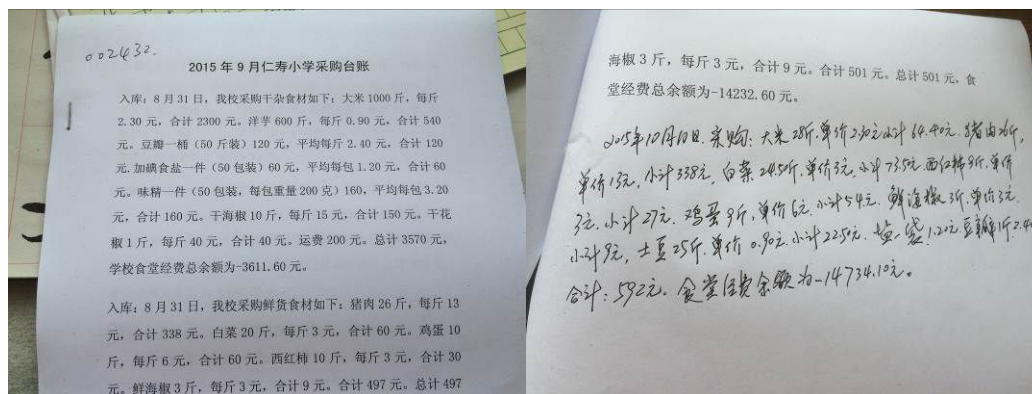 002432.
2015年9月仁寿小学采购台账
入库：8月31日，我校采购干杂食材如下：大米1000斤，每斤
2.30元，合计2300元。洋芋600斤，每斤0.90元，合计540
元。豆瓣一桶（50斤装）120元，平均每斤2.40元，合计120
元.加碘食盐一件（50包装）60元，平均每包1.20元，合计60
元。味精一件（50包装，每包重量200克）160，平均每包3.20
元，合计160元。干海椒10斤，每斤15元，合计150元。干花
椒1斤，每斤40元，合计40元。运费200元。总计3570元，
学校食堂经费总余额为-3611.60元。
入库：8月31日，我校采购鲜货食材如下：猪肉26斤，每斤13
元，合计338元。白菜20斤，每斤3元，合计60元。鸡蛋10
斤，每斤6元，合计60元。西红柿10斤，每斤3元，合计30
元。鲜海椒3斤，每斤3元，合计9元。合计497元。总计497
海椒3斤，每斤3元，合计9元。合计501元。总计501元，食
堂经费总余额为-14232.60元。
2015年10月10日.采购：大米28斤.单价2.30元小计64.40元.猪肉26斤，
单价13元，小计338元，白菜24.5斤.单价3元，小计73.5元.西红柿9斤.单价
3元.小计27元.鸡蛋9斤，单价6元.小计54元.鲜海椒3斤.单价3元.
小计9元，土豆25斤.单价0.90元.小计22.50元.盐一袋1.20元豆瓣1斤2.40
合计：592元.食堂经费余额为-14734.10元。